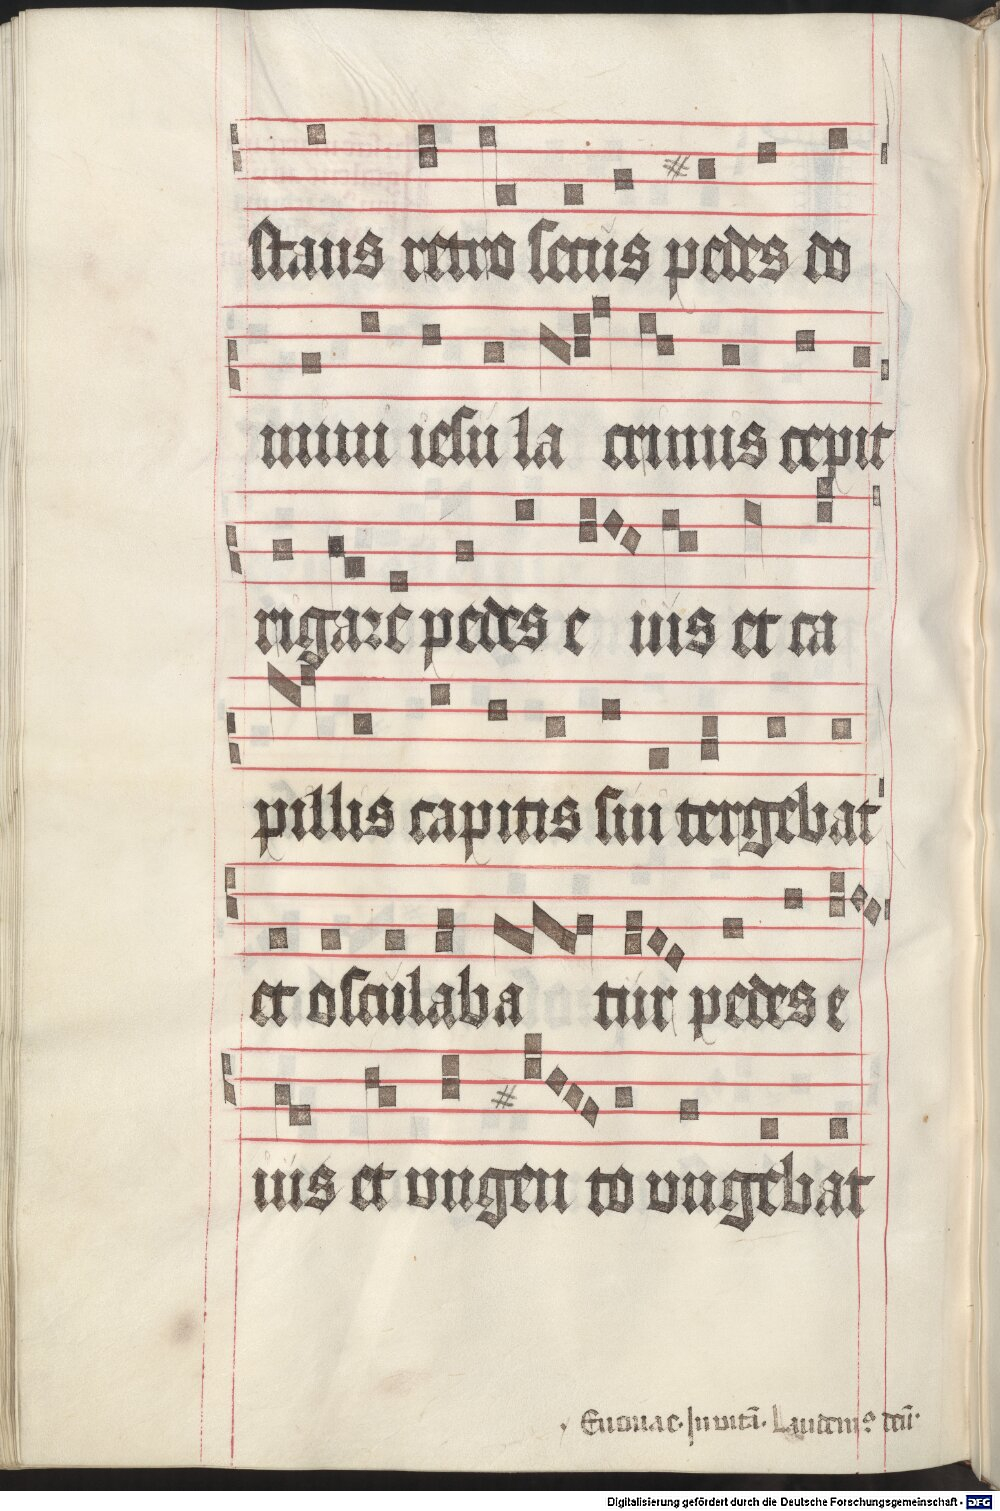 stans retro secus pedes do
mini iesu la crimis cepit
rigare pedes e ius et ca
pillis capitis sui tergebat
et osculaba tur pedes e
ius et ungen to ungebat
Euouae. Inuitā. Laudem⁹ deū.
Digitalisierung gefördert durch die Deutsche Forschungsgemeinschaft - DFG